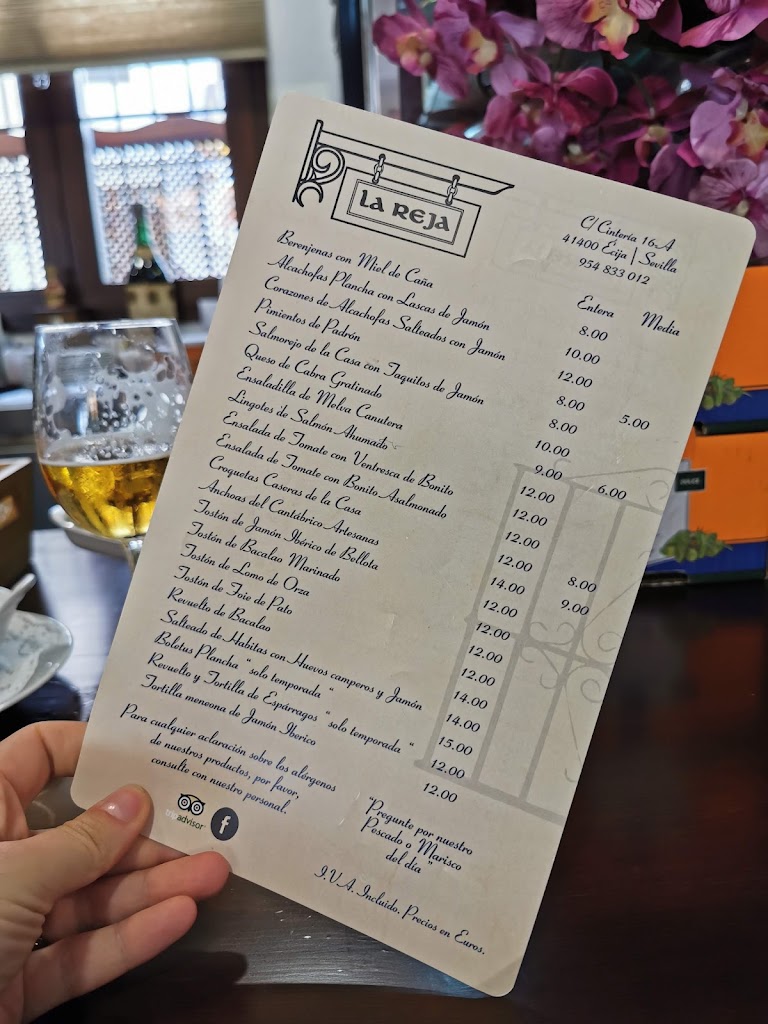 LA REJA
C/ Cintería 16A
41400 Écija | Sevilla
954 833 012
Entera Media
Berenjenas con Miel de Caña 8.00
Alcachofas Plancha con Lascas de Jamón 10.00
Corazones de Alcachofas Salteados con Jamón 12.00
Pimientos de Padrón 8.00 5.00
Salmorejo de la Casa con Taquitos de Jamón 8.00
Queso de Cabra Gratinado 10.00
Ensaladilla de Melva Canutera 9.00 6.00
Lingotes de Salmón Ahumado 12.00
Ensalada de Tomate con Ventresca de Bonito 12.00
Ensalada de Tomate con Bonito Asalmonado 12.00
Croquetas Caseras de la Casa 12.00 8.00
Anchoas del Cantábrico Artesanas 14.00 9.00
Tostón de Jamón Ibérico de Bellota 12.00
Tostón de Bacalao Marinado 12.00
Tostón de Lomo de Orza 12.00
Tostón de Foie de Pato 12.00
Revuelto de Bacalao 14.00
Salteado de Habitas con Huevos camperos y Jamón 14.00
Boletus Plancha "solo temporada" 15.00
Revuelto y Tortilla de Espárragos "solo temporada" 12.00
Tortilla meneona de Jamón Iberico 12.00
Para cualquier aclaración sobre los alérgenos
de nuestros productos, por favor,
consulte con nuestro personal.
tripadvisor f
"Pregunte por nuestro
Pescado o Marisco
del día"
I.V.A. Incluido. Precios en Euros.